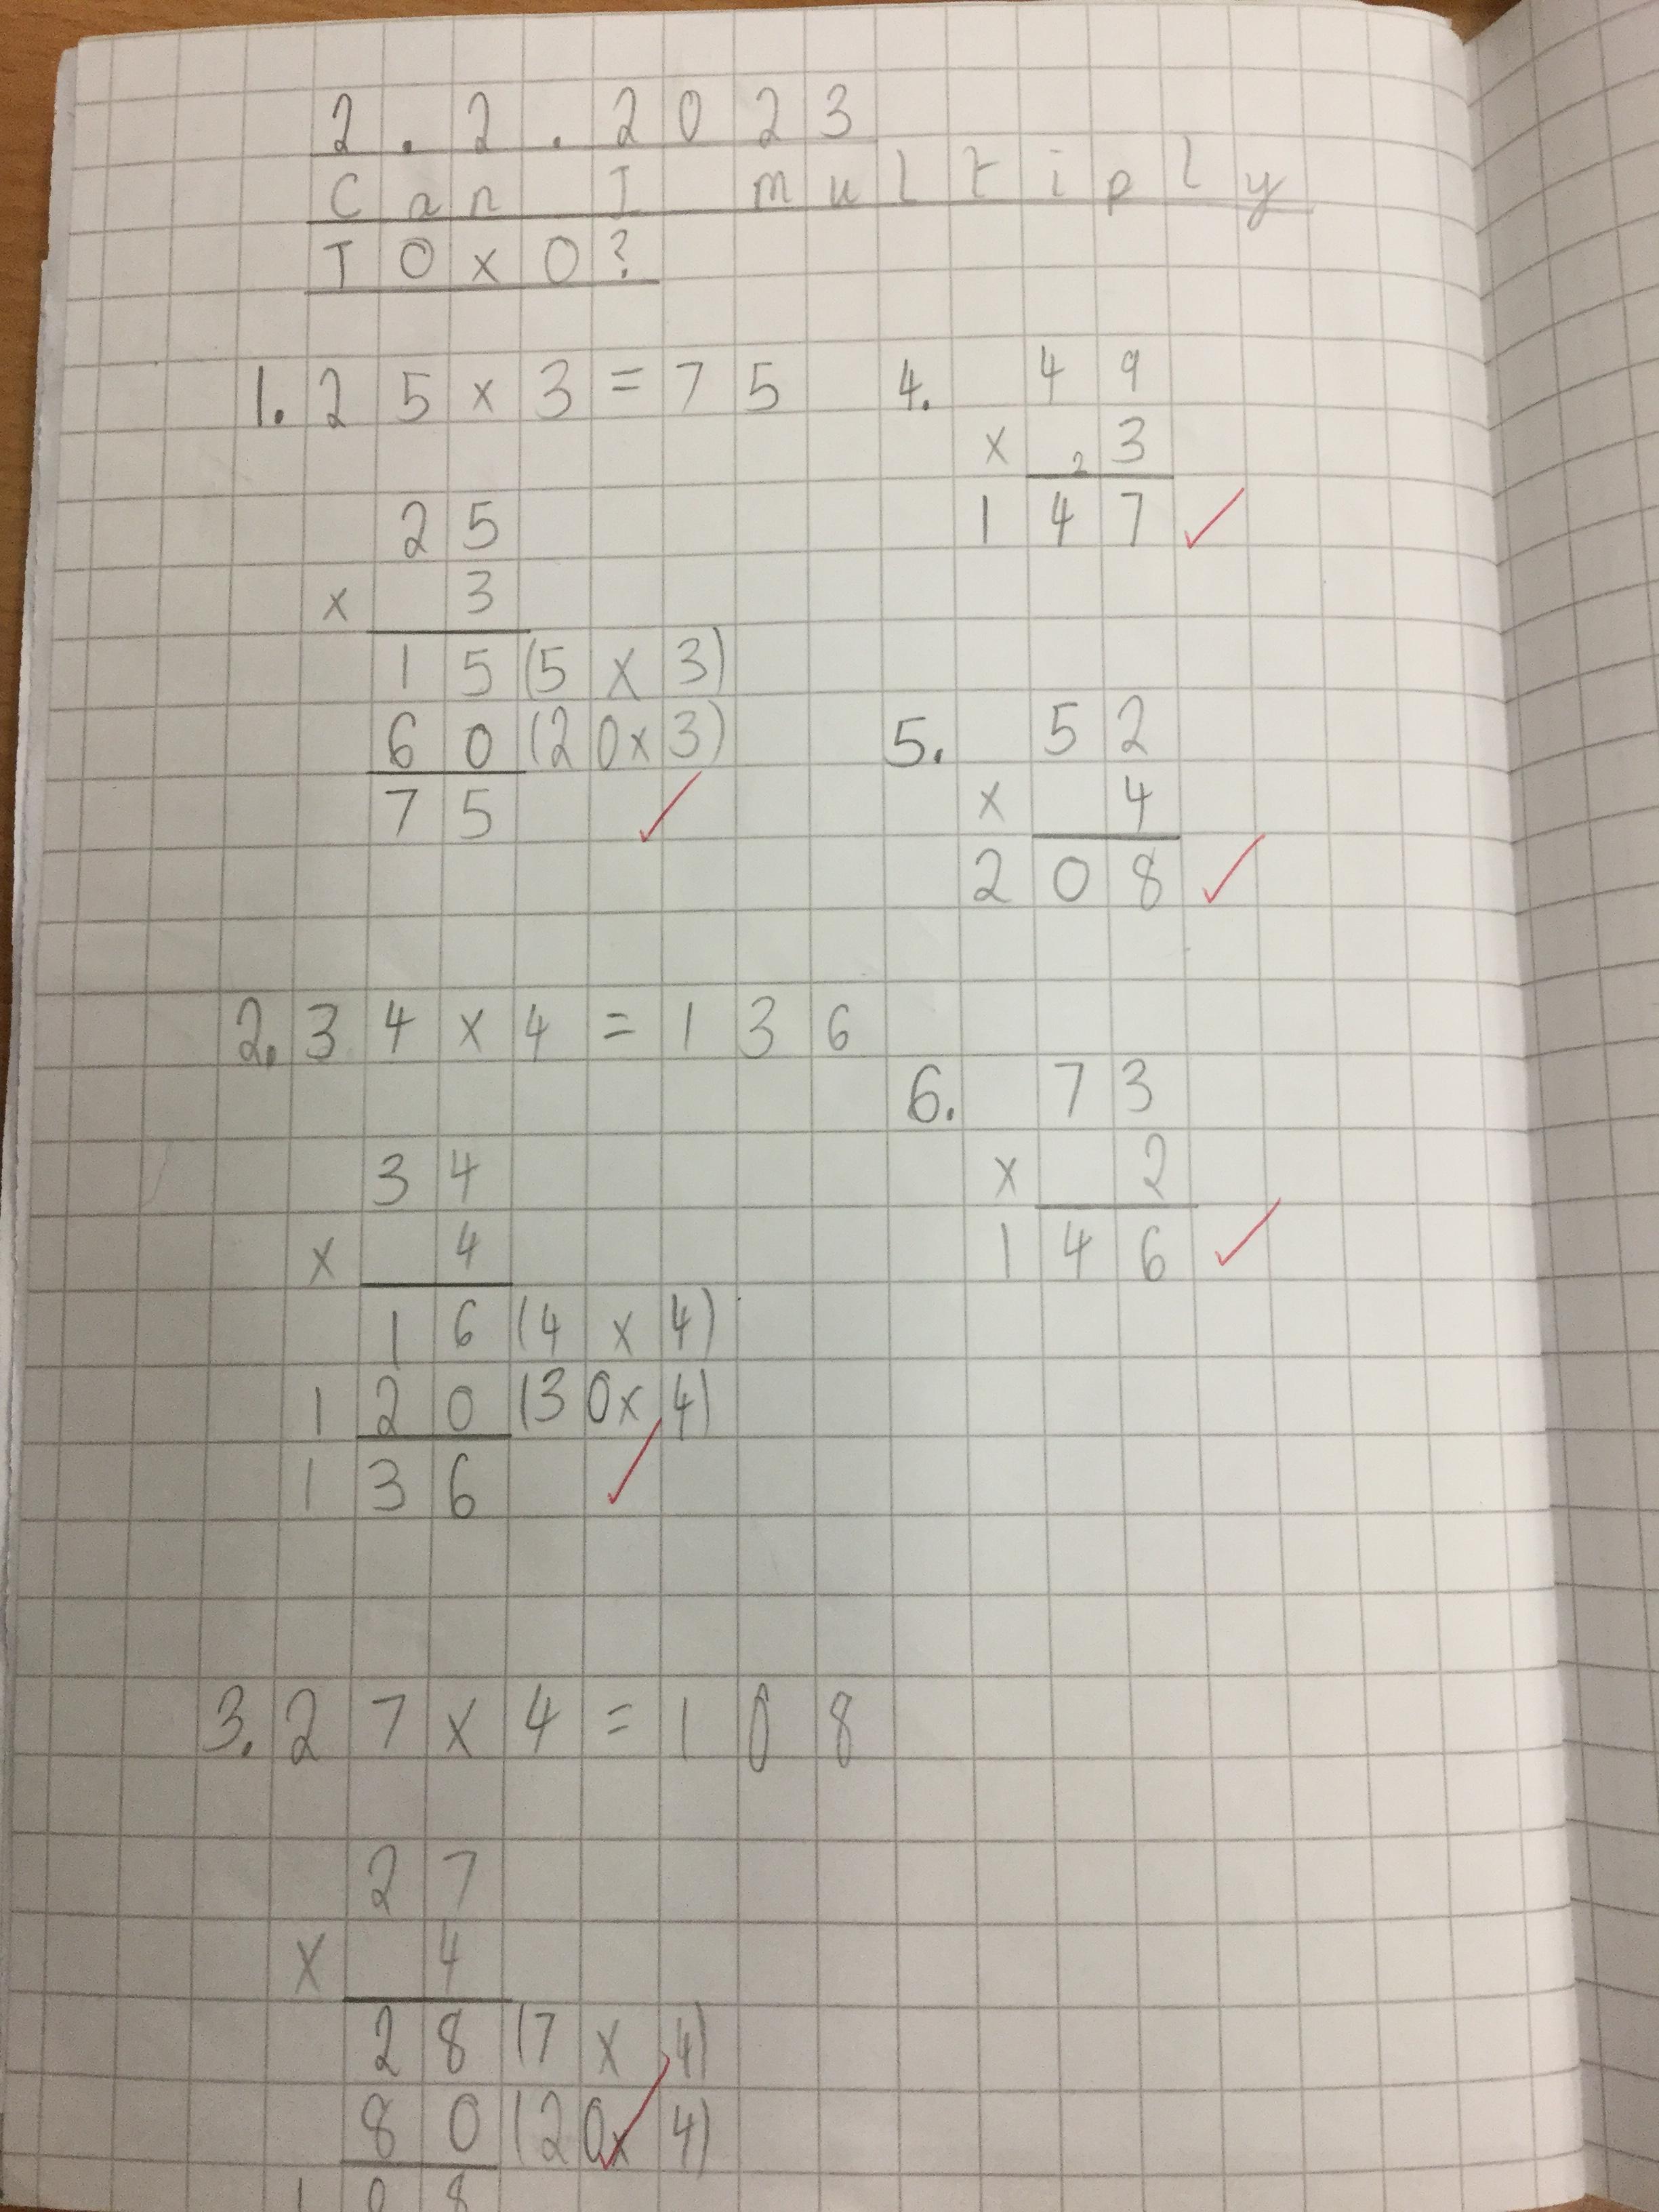 2.2.2023
Can I multiply
TO x O?
1. 25 x 3 = 75
25
x 3
15 (5 x 3)
60 (20 x 3)
75 ✓
2. 34 x 4 = 136
34
x 4
16 (4 x 4)
120 (30 x 4)
136 ✓
3. 27 x 4 = 108
27
x 4
28 (7 x 4)
80 (20 x 4)
108 ✓
4. 49
x 2 3
147 ✓
5. 52
x 4
208 ✓
6. 73
x 2
146 ✓